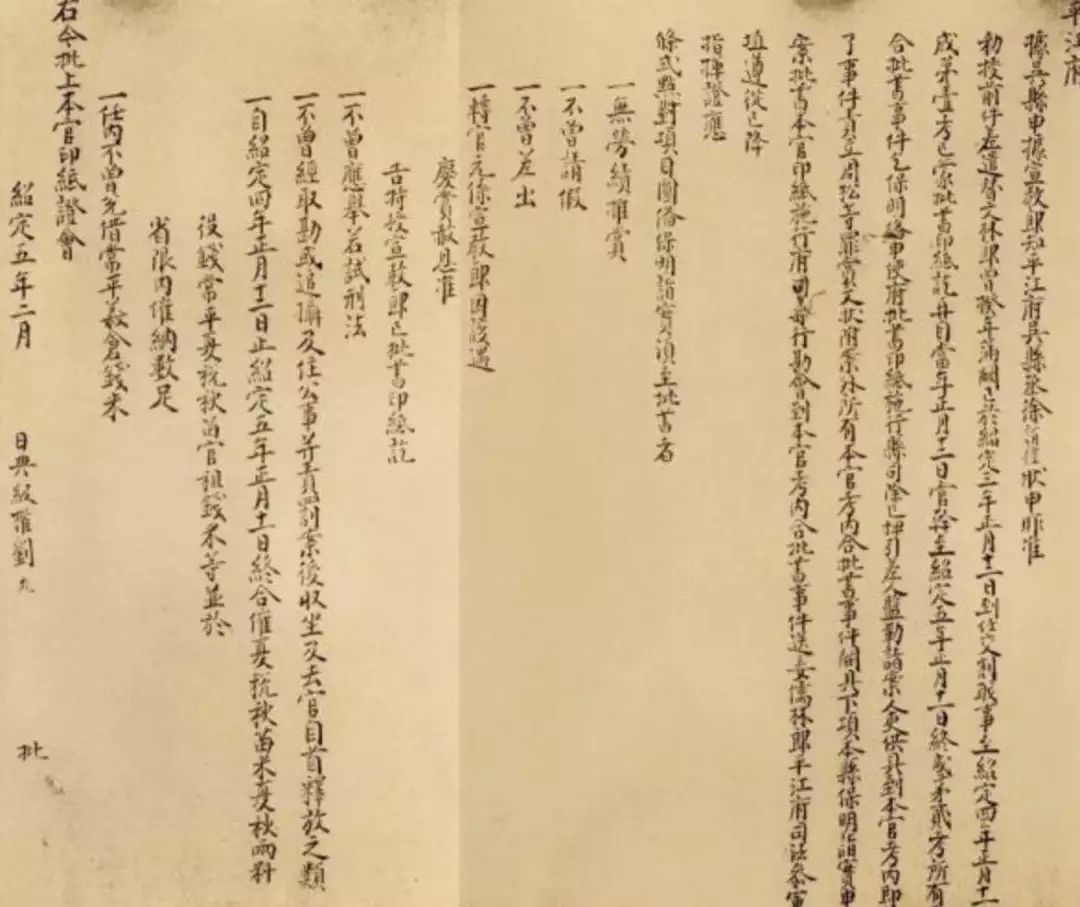 平江府
據吳縣申據宣教郎知平江府吳縣丞徐謂禮狀申昨准
勅授前件差遣替文林郎曾 年滿闕已於紹定三年正月十二日到任交割職事至紹定四年正月十一
成第壹考已蒙批書印紙訖再自當年正月十二日官 至紹定五年正月十一日終成第貳考所有
合批書事件乞保明備申使府批書印紙施行縣司除已押引差人監勒諸案人吏供具到本官考內即
了事件責立周松等罪賞文狀附案外所有本官考內合批書事件開具下項本縣保明詣實申
案批書本官印紙施行府司尋行勘會到本官考內合批書事件送委儒林郎平江府司法參軍
項遵從已降
指揮證應
條式點對項目圓備保明詣實須至批書者
一無勞績推賞
一不曾請假
一不曾差出
一轉官元係宣教郎因該遇
慶壽赦恩准
告特授宣教郎已批書印紙訖
一不曾應舉若試刑法
一不曾經取勘或追攝及住公事并責罰案後收坐及去官自首釋放之類
一自紹定四年正月十二日止紹定五年正月十一日終合催夏稅秋苗米夏秋兩料
役錢常平夏稅秋苗官租錢米等並於
省限內催納數足
一任內不曾兌借常平義倉錢米
右今批上本官印紙證會
紹定五年二月 日典級 劉 批